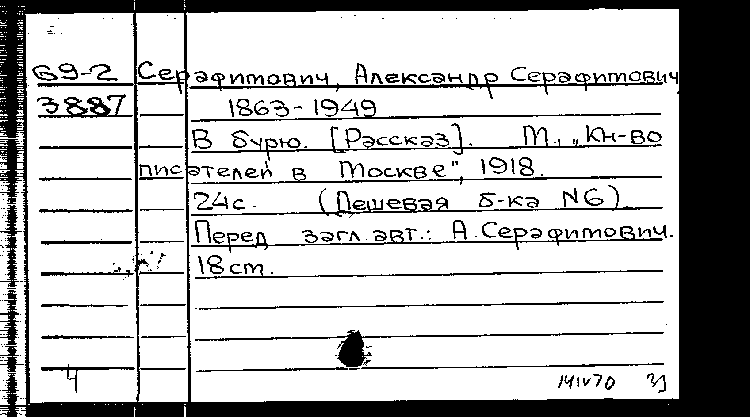 69-2 Серафимович, Александр Серафимович
3887 1863-1949
В бурю. [Рассказ]. М., „Кн-во
писателей в Москве", 1918.
24с. (Дешевая б-ка N6)
Перед загл. авт.: А. Серафимович.
18 cm.
4 14IV70